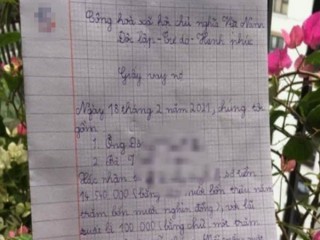 Cộng hoà xã hội chủ nghĩa Việt Nam
Độc lập - Tự do - Hạnh phúc
Giấy vay nợ
Ngày 18 tháng 2 năm 2021, chúng tôi
gồm
1. Ông Đỗ
2. Bà T
Xác nhận số tiền
14.540.000 (bằng mươi bốn triệu năm
trăm bốn mươi nghìn đồng), với lãi
suất là 100.000 (bằng chữ: một trăm